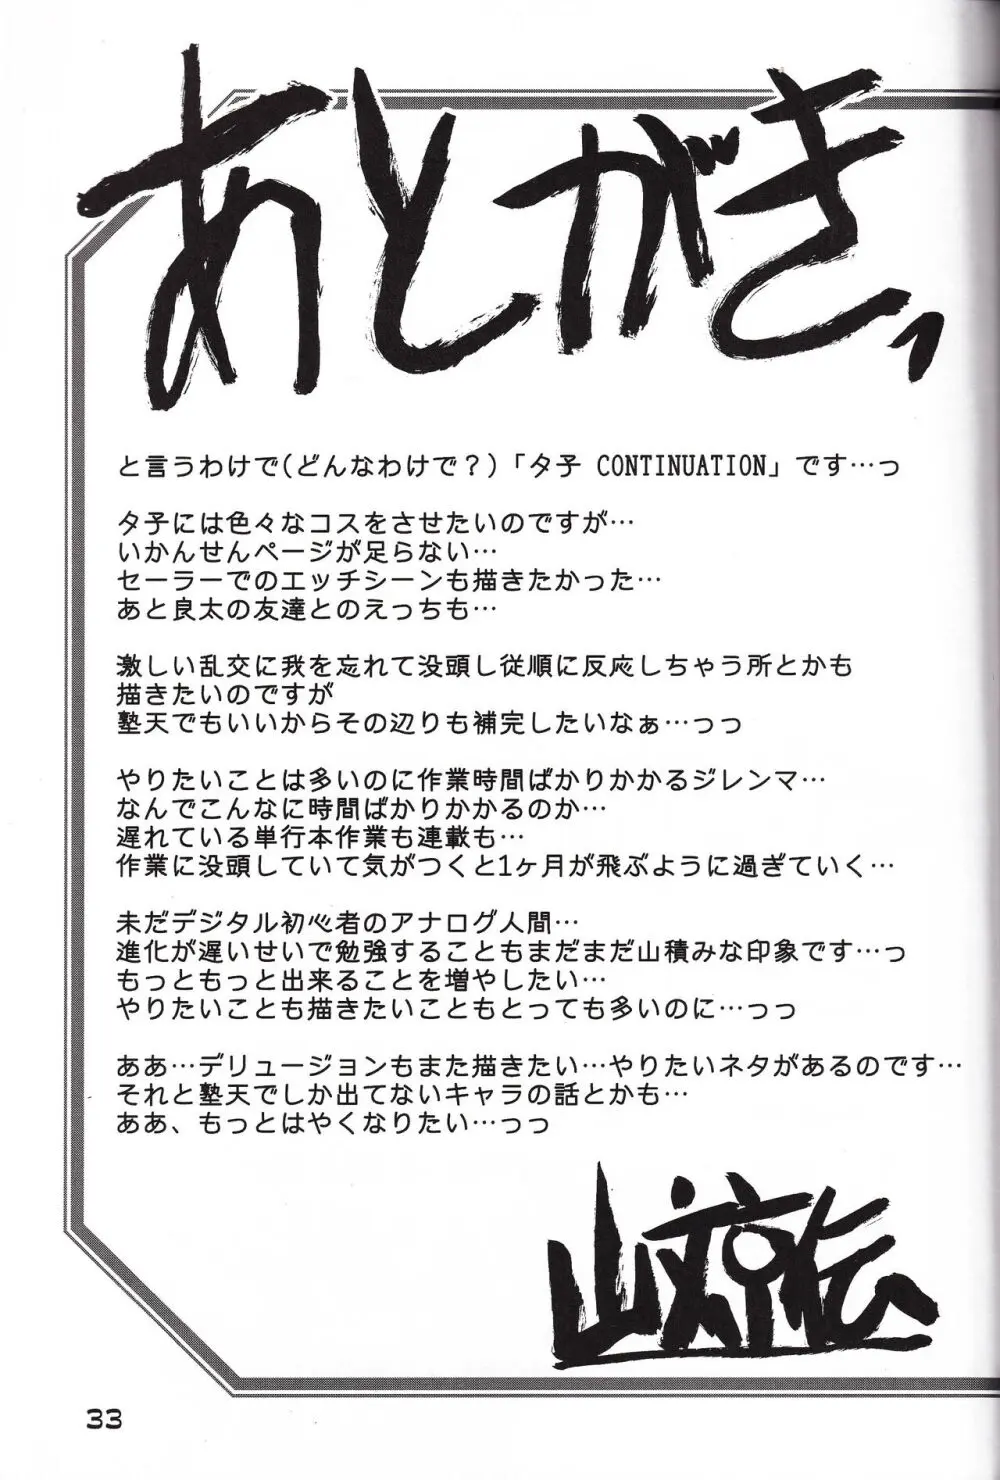 あとがき、
と言うわけで(どんなわけで?)「夕子 CONTINUATION」です…っ
夕子には色々なコスをさせたいのですが…
いかんせんページが足らない…
セーラーでのエッチシーンも描きたかった…
あと良太の友達とのえっちも…
激しい乱交に我を忘れて没頭し従順に反応しちゃう所とかも
描きたいのですが
塾天でもいいからその辺りも補完したいなぁ…っっ
やりたいことは多いのに作業時間ばかりかかるジレンマ…
なんでこんなに時間ばかりかかるのか…
遅れている単行本作業も連載も…
作業に没頭していて気がつくと1ヶ月が飛ぶように過ぎていく…
未だデジタル初心者のアナログ人間…
進化が遅いせいで勉強することもまだまだ山積みな印象です…っ
もっともっと出来ることを増やしたい…
やりたいことも描きたいこともとっても多いのに…っっ
ああ…デリュージョンもまた描きたい…やりたいネタがあるのです…
それと塾天でしか出てないキャラの話とかも…
ああ、もっとはやくなりたい…っっ
山文京伝
33